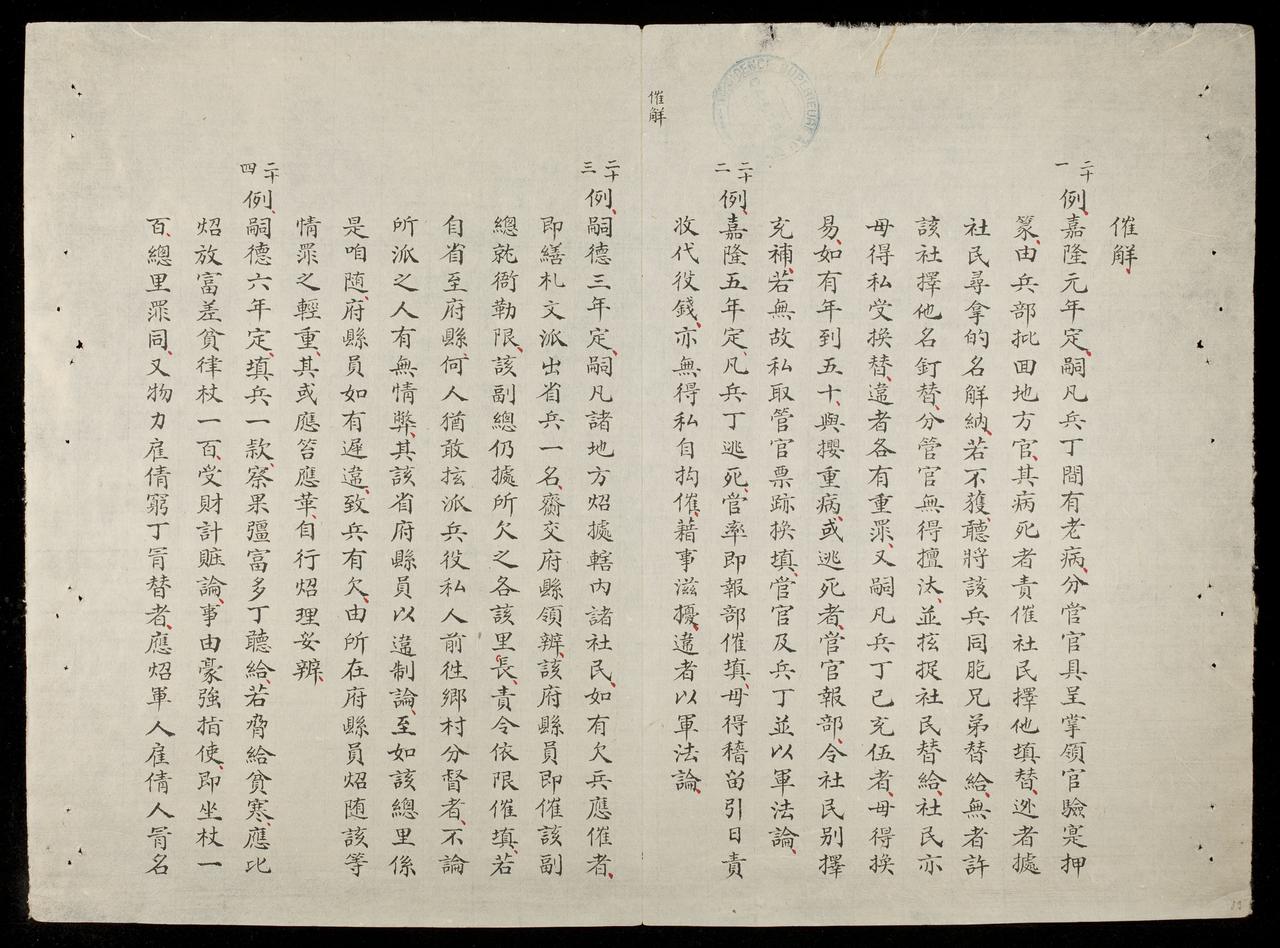 催解
二十一 例嘉隆元年定嗣凡兵丁間有老病分管官具呈掌領官驗寔押
篆由兵部批回地方官其病死者責催社民擇他填替迯者據
社民尋拿的名解納若不獲聽將該兵同胞兄弟替給無者許
該社擇他名釘替分管官無得擅汰並挍捉社民替給社民亦
毋得私受換替違者各有重罪又嗣凡兵丁已充伍者毋得換
易如有年到五十與攖重病或逃死者管官報部令社民別擇
充補若無故私取管官票跡換填管官及兵丁並以軍法論
二十二 例嘉隆五年定凡兵丁逃死管率即報部催填毋得稽留引日責
收代役錢亦無得私自拘催藉事滋擾違者以軍法論
催解
二十三 例嗣德三年定嗣凡諸地方炤據轄内諸社民如有欠兵應催者
即繕札文派出省兵一名齎交府縣領辨該府縣員即催該副
總就衙勒限該副總仍據所欠之各該里長責令依限催填若
自省至府縣何人猶敢挍派兵役私人前徃鄉村分督者不論
所派之人有無情弊其該省府縣員以違制論至如該總里係
是咱随府縣員如有遲違致兵有欠由所在府縣員炤随該等
情罪之輕重其或應笞應革自行炤理妥辨
二十四 例嗣德六年定填兵一款察果彊富多丁聽給若脅給貧寒應比
炤放富差貧律杖一百受財計贓論事由豪強指使即坐杖一
百總里罪同又物力雇倩窮丁冐替者應炤軍人雇倩人冐名